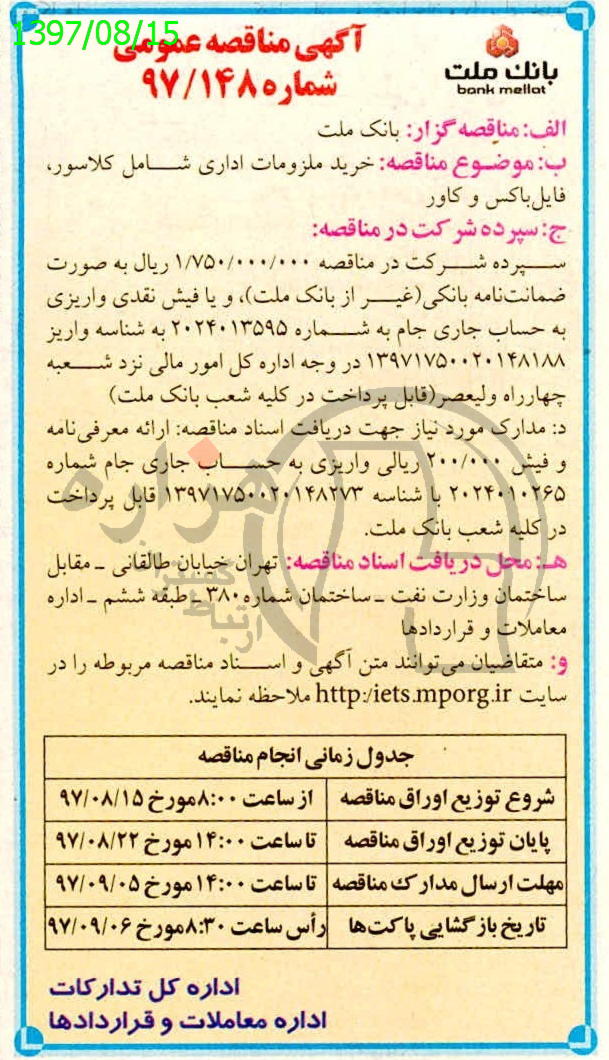 1397/08/15
آگهی مناقصه عمومی
شماره ۹۷/۱۴۸
بانک ملت
bank mellat
الف: مناقصه‌گزار: بانک ملت
ب: موضوع مناقصه: خرید ملزومات اداری شامل کلاسور،
فایل‌باکس و کاور
ج: سپرده شرکت در مناقصه:
سپرده شرکت در مناقصه ۱/۷۵۰/۰۰۰/۰۰۰ ریال به صورت
ضمانت‌نامه بانکی(غیر از بانک ملت)، و یا فیش نقدی واریزی
به حساب جاری جام به شماره ۲۰۲۴۰۱۳۵۹۵ به شناسه واریز
۱۳۹۷۱۷۵۰۰۲۰۱۴۸۱۸۸ در وجه اداره کل امور مالی نزد شعبه
چهارراه ولیعصر(قابل پرداخت در کلیه شعب بانک ملت)
د: مدارک مورد نیاز جهت دریافت اسناد مناقصه: ارائه معرفی‌نامه
و فیش ۲۰۰/۰۰۰ ریالی واریزی به حساب جاری جام شماره
۲۰۲۴۰۱۰۲۶۵ با شناسه ۱۳۹۷۱۷۵۰۰۲۰۱۴۸۲۷۳ قابل پرداخت
در کلیه شعب بانک ملت.
هـ: محل دریافت اسناد مناقصه: تهران خیابان طالقانی ـ مقابل
ساختمان وزارت نفت ـ ساختمان شماره ۳۸۰ ـ طبقه ششم ـ اداره
معاملات و قراردادها
و: متقاضیان می‌توانند متن آگهی و اسناد مناقصه مربوطه را در
سایت http:/iets.mporg.ir ملاحظه نمایند.
جدول زمانی انجام مناقصه
شروع توزیع اوراق مناقصه از ساعت ۸:۰۰ مورخ ۹۷/۰۸/۱۵
پایان توزیع اوراق مناقصه تا ساعت ۱۴:۰۰ مورخ ۹۷/۰۸/۲۲
مهلت ارسال مدارک مناقصه تا ساعت ۱۴:۰۰ مورخ ۹۷/۰۹/۰۵
تاریخ بازگشایی پاکت‌ها رأس ساعت ۸:۳۰ مورخ ۹۷/۰۹/۰۶
اداره کل تدارکات
اداره معاملات و قراردادها
هزاره